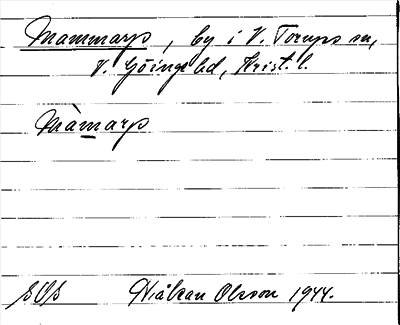 Mammarp, by i V. Torups sn,
V. Göinge hd, Krist. l.
Màmarp
SOS Håkan Olsson 1944.